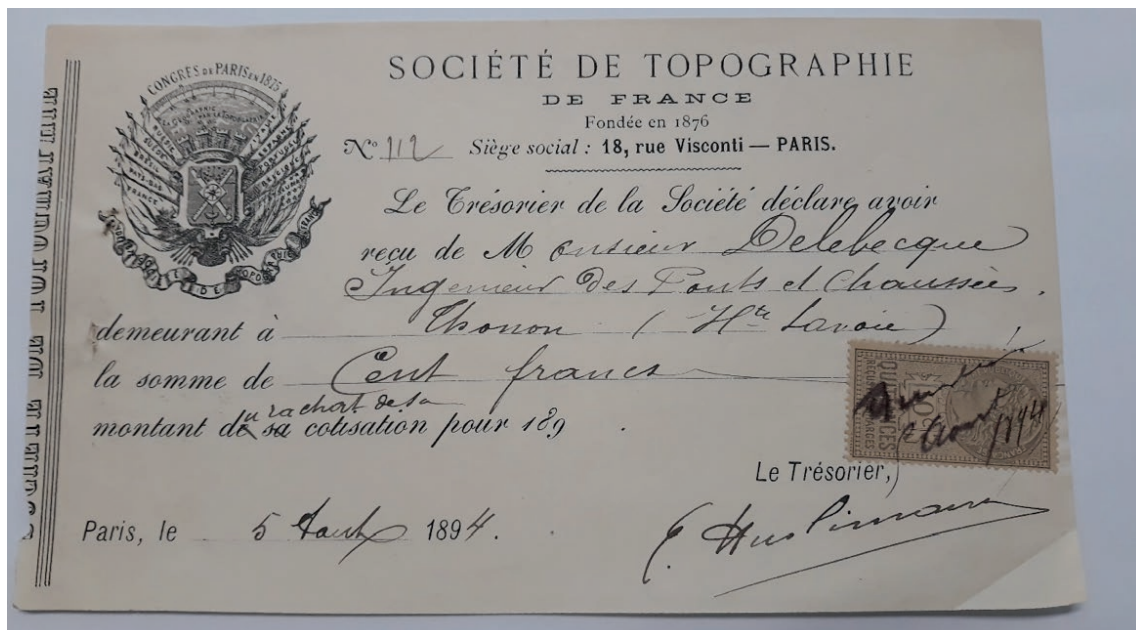 CONGRÈS DE PARIS EN 1875
SOCIÉTÉ DE TOPOGRAPHIE
DE FRANCE
Fondée en 1876
N° 112 Siège social : 18, rue Visconti — PARIS.
RUSSIE
SUÈDE
BRÉSIL
PAYS-BAS
FRANCE
ESPAGNE
PORTUGAL
BELGIQUE
Le Trésorier de la Société déclare avoir
reçu de Monsieur Delebecque
Ingenieur des Ponts et Chaussées.
demeurant à Thonon (Hte Savoie)
la somme de Cent francs
u rachat de sa
montant de sa cotisation pour 189 .
QUITTANCES
10c
Août 1894
Le Trésorier,
Paris, le 5 Aout 1894.